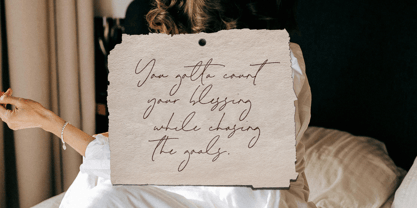 You gotta count
your blessing
while chasing
the goals.